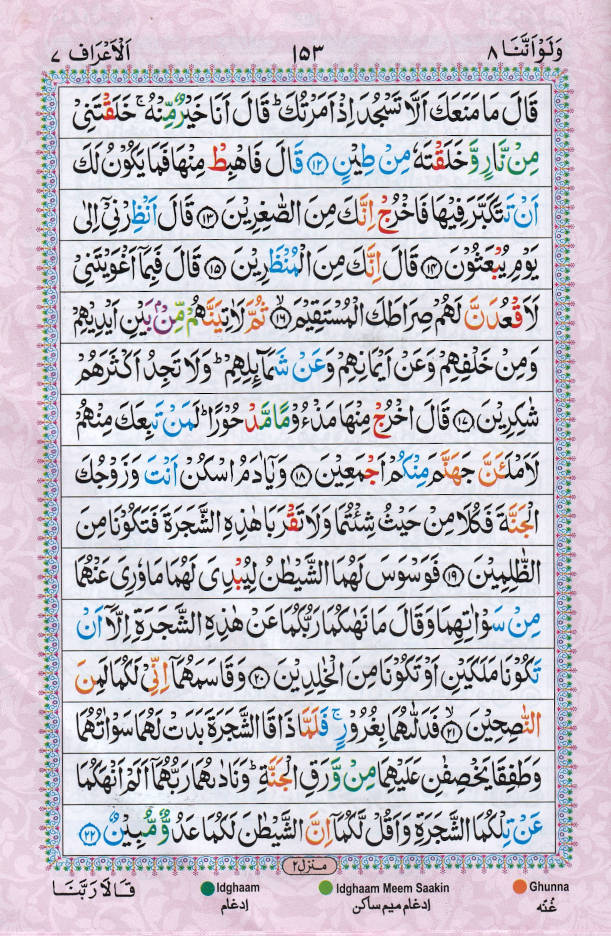 وَلَوْ اَنَّنَا ٨ ١٥٣ اَلْاَعْرَاف ٧
قَالَ مَا مَنَعَكَ اَلَّا تَسْجُدَ اِذْ اَمَرْتُكَ ؕ قَالَ اَنَا خَيْرٌ مِّنْهُ ۚ خَلَقْتَنِيْ
مِنْ نَّارٍ وَّ خَلَقْتَهٗ مِنْ طِيْنٍ ١٢ قَالَ فَاهْبِطْ مِنْهَا فَمَا يَكُوْنُ لَكَ
اَنْ تَتَكَبَّرَ فِيْهَا فَاخْرُجْ اِنَّكَ مِنَ الصّٰغِرِيْنَ ١٣ قَالَ اَنْظِرْنِيْۤ اِلٰى
يَوْمِ يُبْعَثُوْنَ ١٤ قَالَ اِنَّكَ مِنَ الْمُنْظَرِيْنَ ١٥ قَالَ فَبِمَاۤ اَغْوَيْتَنِيْ
لَاَقْعُدَنَّ لَهُمْ صِرَاطَكَ الْمُسْتَقِيْمَ ١٦ ثُمَّ لَاٰتِيَنَّهُمْ مِّنْۢ بَيْنِ اَيْدِيْهِمْ
وَمِنْ خَلْفِهِمْ وَعَنْ اَيْمَانِهِمْ وَعَنْ شَمَآئِلِهِمْ ؕ وَلَا تَجِدُ اَكْثَرَهُمْ
شٰكِرِيْنَ ١٧ قَالَ اخْرُجْ مِنْهَا مَذْءُوْمًا مَّدْحُوْرًا ؕ لَمَنْ تَبِعَكَ مِنْهُمْ
لَاَمْلَـَٔنَّ جَهَنَّمَ مِنْكُمْ اَجْمَعِيْنَ ١٨ وَيٰۤاٰدَمُ اسْكُنْ اَنْتَ وَزَوْجُكَ
الْجَنَّةَ فَكُلَا مِنْ حَيْثُ شِئْتُمَا وَلَا تَقْرَبَا هٰذِهِ الشَّجَرَةَ فَتَكُوْنَا مِنَ
الظّٰلِمِيْنَ ١٩ فَوَسْوَسَ لَهُمَا الشَّيْطٰنُ لِيُبْدِيَ لَهُمَا مَا وٗرِيَ عَنْهُمَا
مِنْ سَوْاٰتِهِمَا وَقَالَ مَا نَهٰىكُمَا رَبُّكُمَا عَنْ هٰذِهِ الشَّجَرَةِ اِلَّاۤ اَنْ
تَكُوْنَا مَلَكَيْنِ اَوْ تَكُوْنَا مِنَ الْخٰلِدِيْنَ ٢٠ وَقَاسَمَهُمَاۤ اِنِّيْ لَكُمَا لَمِنَ
النّٰصِحِيْنَ ٢١ فَدَلّٰىهُمَا بِغُرُوْرٍ ۚ فَلَمَّا ذَاقَا الشَّجَرَةَ بَدَتْ لَهُمَا سَوْاٰتُهُمَا
وَطَفِقَا يَخْصِفٰنِ عَلَيْهِمَا مِنْ وَّرَقِ الْجَنَّةِ ؕ وَنَادٰىهُمَا رَبُّهُمَاۤ اَلَمْ اَنْهَكُمَا
عَنْ تِلْكُمَا الشَّجَرَةِ وَاَقُلْ لَّكُمَاۤ اِنَّ الشَّيْطٰنَ لَكُمَا عَدُوٌّ مُّبِيْنٌ ٢٢
منزل ٢
قَالَا رَبَّنَا Idghaam Idghaam Meem Saakin Ghunna
اِدغام اِدغام میم ساکن غُنّہ